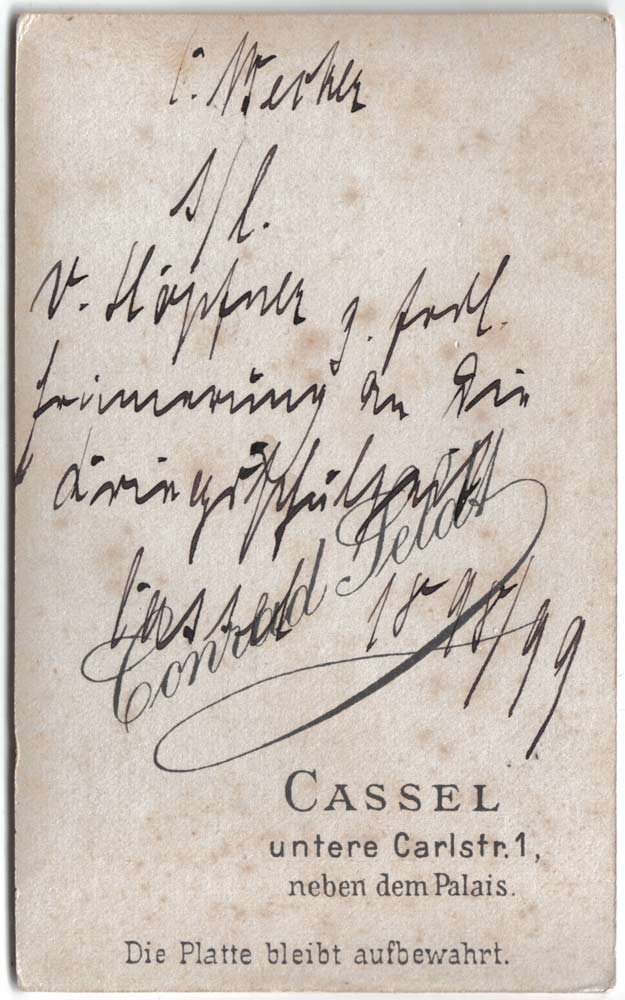 C. Becker
s/l.
v. Höpfner z. frdl.
Erinnerung an die
Kriegsschulzeit
Cassel 1898/99
Conrad Feldt
CASSEL
untere Carlstr. 1,
neben dem Palais.
Die Platte bleibt aufbewahrt.